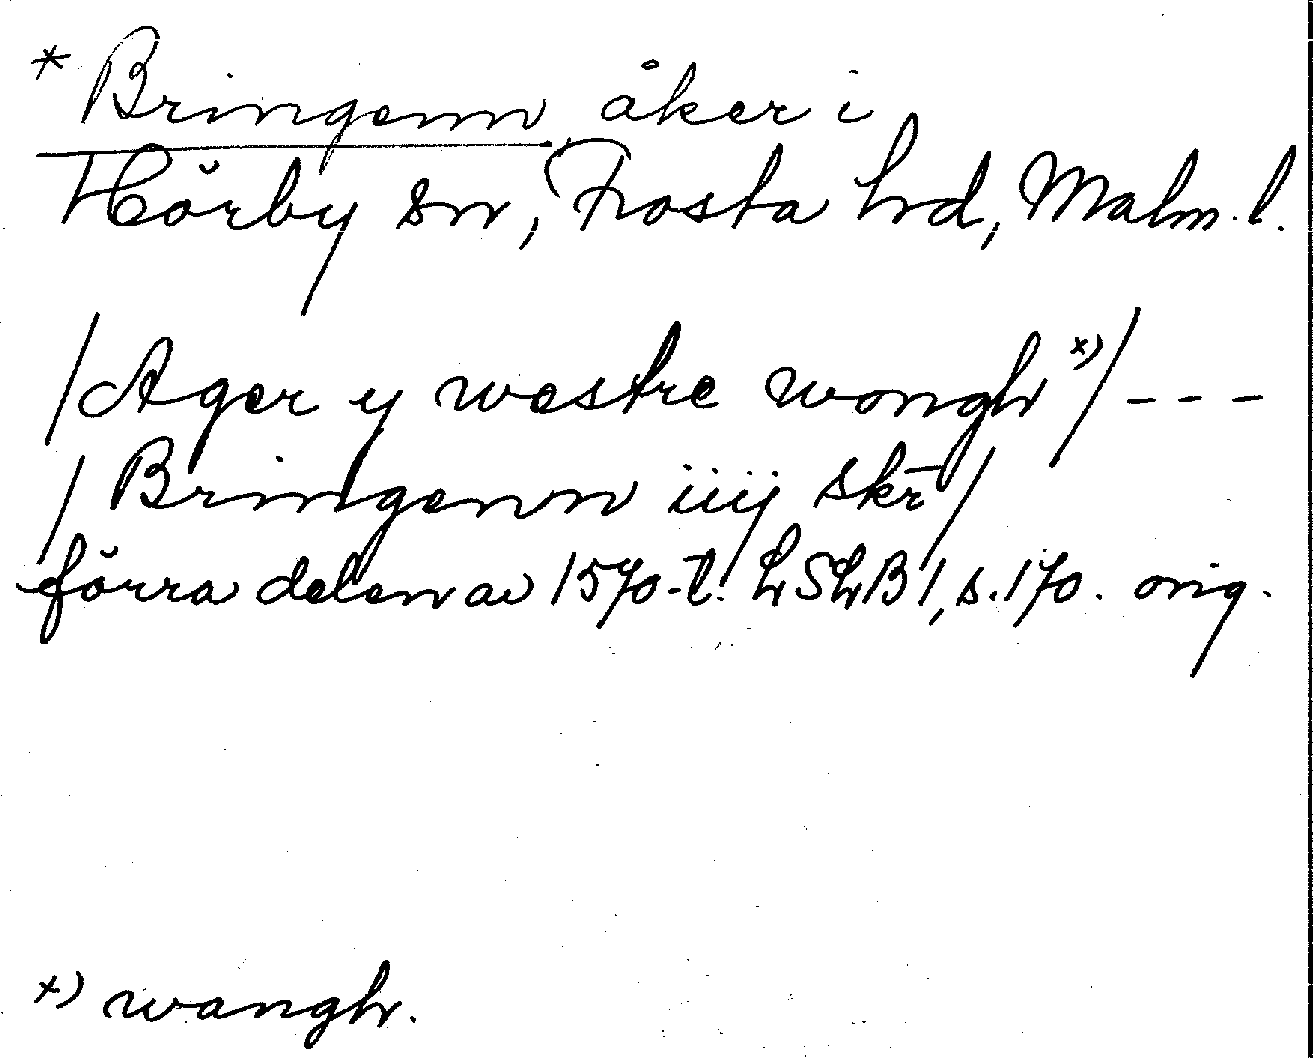 * Bringenn åker i
Hörby sn, Frosta hrd, Malm. l.
/Ager y westre wongh x)/ - - -
/ Bringenn iiij skr̄ /
förra delen av 1570-t. LSLB 1, s. 170. orig.
x) wangh.